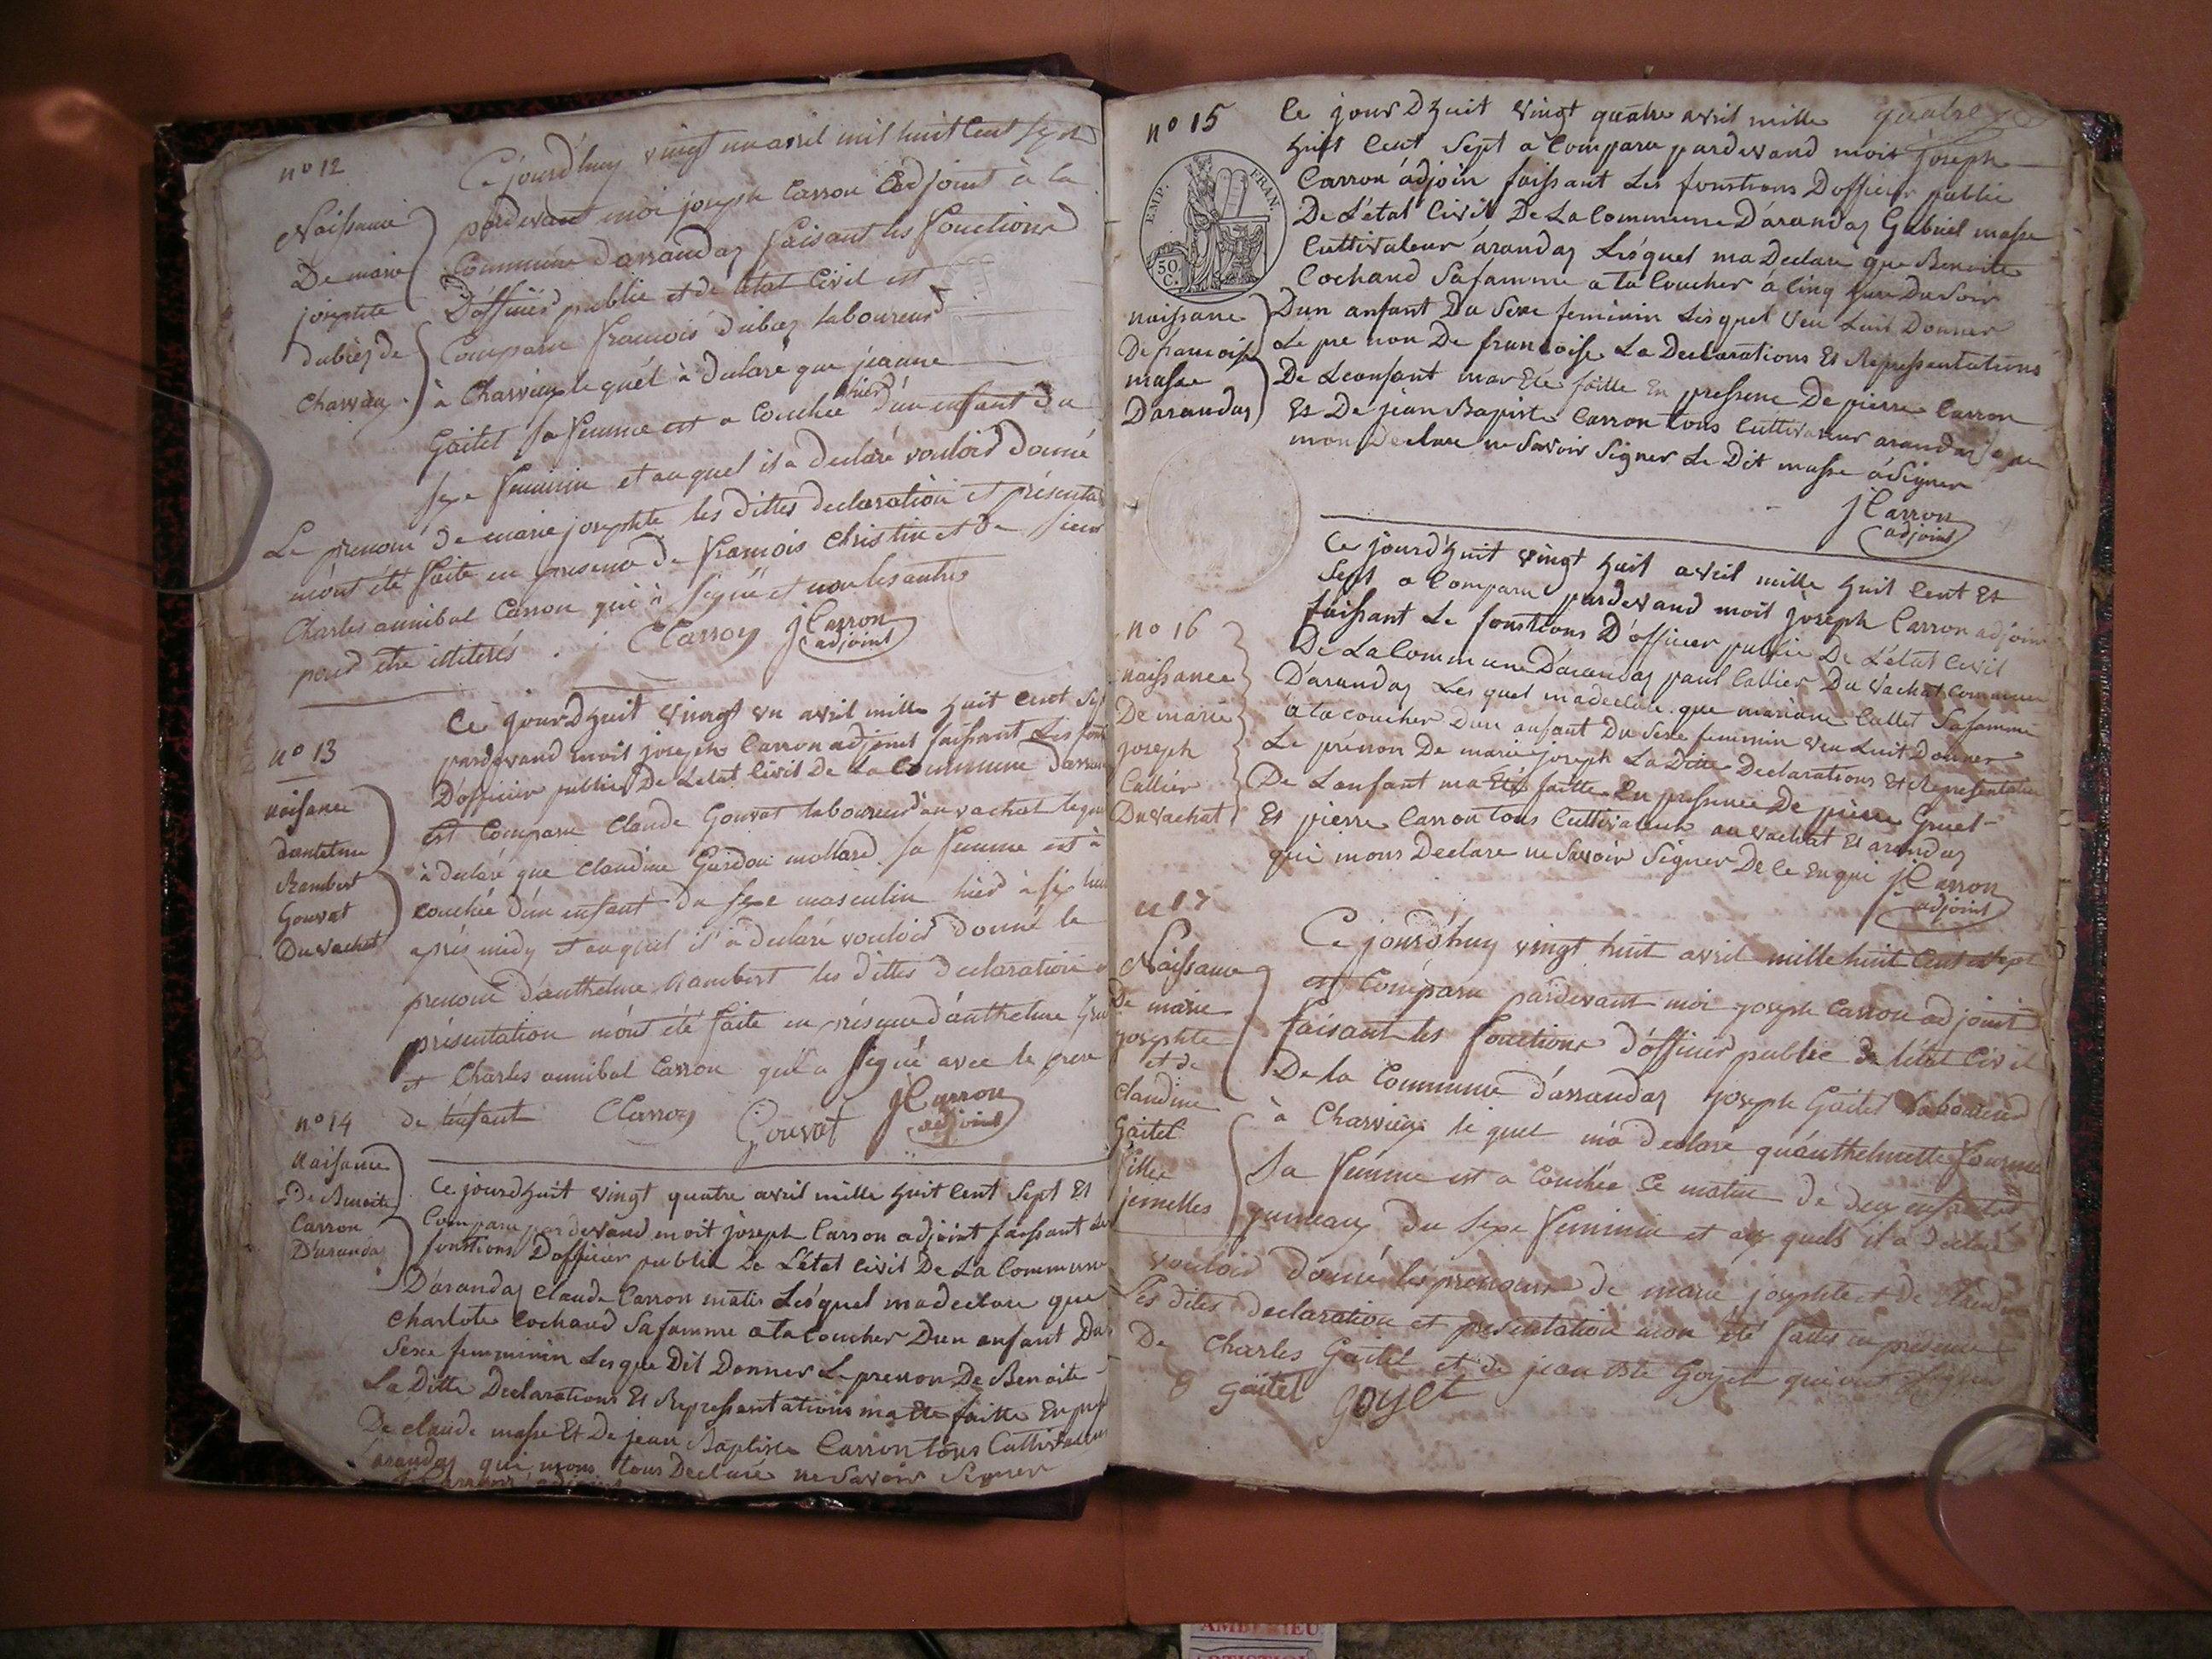 n° 12
Naissance
De marie
josephte
dubiez de
Charvieux
Ce jourd'huy vingt un avril mil huit cent sept
pardevant moi joseph Carron adjoint à la
Commune d'arrandaz faisant les fonctions
D'officier public et de l'état Civil est
Comparu françois dubiez laboureur
à Charvieux lequel à declare que jeanne
Gaitel sa femme est a couchée hier d'un enfant du
sexe feminin et auquel il a declaré vouloir donné
Le prenom de marie josephte les dittes declaration et présenta
m'ont été faite en présence de françois Christin et de sieur
Charles annibal Carron qui à signé et non les autres
pour être illiterés. CCarron JCarron
adjoint
n° 13
naissance
dantelme
Rambert
Gouvat
Du vachat
Ce jourdhuit vingt un avril mille huit cent sep
pardevand moit joseph Carron adjoint faissant Les fonc
D'officier public De L'état Civil De La Commune Darran
est Comparu Claude Gouvat laboureur au vachat lequ
à declaré que Claudine Gardon mollard sa femme est à
couchée d'un enfant du sexe masculin hier à six heu
après midy et auquel il à declaré vouloir donné le
prenom d'anthelme Rambert les dittes declaration
présentation m'ont été faite en présence d'anthelme
et Charles annibal Carron qui a signé avec le pere
de l'enfant CCarron Gouvat JCarron
adjoint
n° 14
naissance
De Benoite
Carron
D'arandaz
Ce jourdhuit vingt quatre avril mille huit cent sept Et
Comparu pardevand moit joseph Carron adjoint faissant Les
fonstions D'officier public De L'état civil De La Commune
D'arandaz Claude Carron matis Lés'quel madeclare que
Charlote Cochand Safamme a ta Coucher Dun anfant Du
Sexe femminin Lesque Dit Donner Le prenon De Benoite
La Ditte Declarations Et Repressentations ma Ete faitte En pres
De claude masse Et De jean Baptiste Carron tous Cultivateurs
arandaz qui mons tous Declaré ne Savoir Signer
n° 15
EMP. FRAN.
50
C.
naissane
De francoise
masse
Darandaz
quatre
Ce jour Dhuit vingt quatre avril mille
huit Cent Sept a Comparu pardevand moit joseph
Carron adjoin faissant Les fonstions Dofficier public
De L'état Civil De La Commune D'arandaz Gabriel masse
Cultivateur arandaz Lés'quel ma Declare que Benoite
Cochand Safamme a ta Coucher a Cinq heure Du Soir
Dun anfant Du Sexe feminin Lesquel veu Luit Donner
Le pre non De francoise La Declarations Et Repressentations
De Leanfant mar Eté faitte En pressence De pierre Carron
Et De jean Bapiste Carron tous Cultivateur arandaz
mon Declare ne Savoir Signer Le Dit masse a Signer
JCarron
adjoint
n° 16
naissance
De marie
joseph
Callier
Du vachat
Ce jourd'huit vingt huit avril mille huit Cent Et
Sept a Comparu pardevand moit joseph Carron adjoin
faissant Le fonstions D'officier public De L'état Civil
De La Commune D'arandaz paul Callier Du Vachat Commune
D'arandaz Les quel madeclare que mariane Callet Safamme
a ta coucher Dun anfant Du Sexe feminin veu Luit Donner
Le prénon De marie joseph La Ditte Declarations Et Representation
De L'anfant ma Eté faitte En pressence De pierre Gruel
Et pierre Carron tous Cultivateur au vachat Et arandaz
qui mons Declare ne Savoir Signer De Ce En qui JCarron
adjoint
n 17
Naissance
De marie
josephte
et de
Claudine
Gaitel
filles
jumelles
Ce jourd'huy vingt huit avril mille huit Cent sept
est Comparu pardevant moi joseph Carron adjoint
faisant les fonctions d'officier public de l'état Civil
De la Commune d'arrandaz joseph Gaitel laboureur
à Charvieux le quel m'a declaré qu'anthelmette
Sa femme est a Couchée Ce matin de deux enfants
jumeaux du sexe feminin et aux quels il a declaré
vouloir donné les prenoms de marie josephte et de Claudine
Les dites declaration et présentation mon été faites en présence
De Charles Gaitel et de jean Bte Goyet qui ont signé
C gaitel Goyet
AMBERIEU